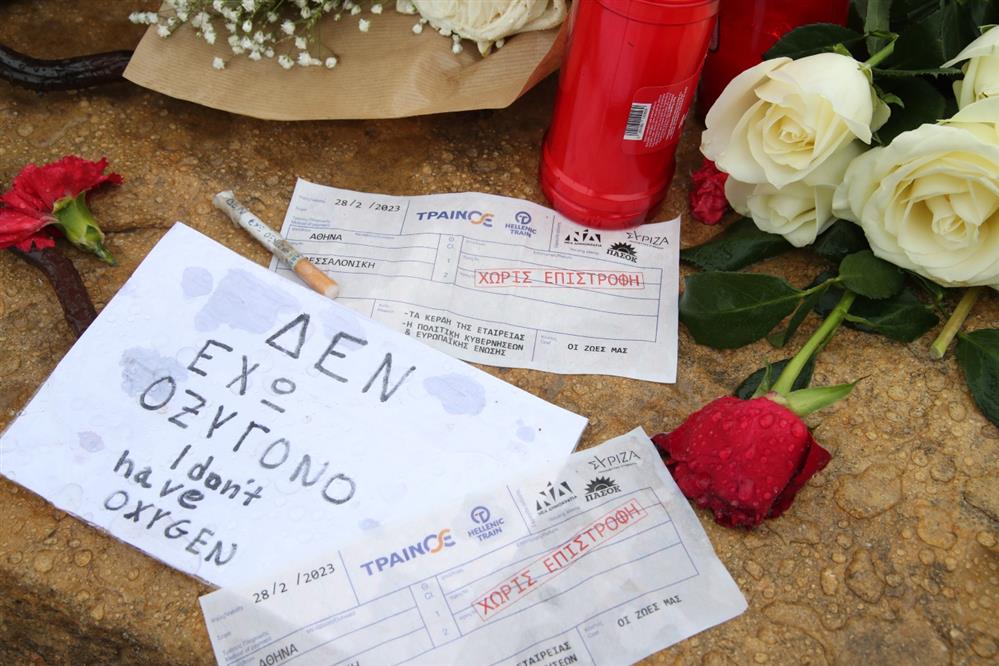 28/2 /2023
ΤΡΑΙΝΟΣΕ
HELLENIC
TRAIN
ΝΔ
ΣΥΡΙΖΑ
ΠΑΣΟΚ
ΑΘΗΝΑ
ΘΕΣΣΑΛΟΝΙΚΗ
ΧΩΡΙΣ ΕΠΙΣΤΡΟΦΗ
-ΤΑ ΚΕΡΔΗ ΤΗΣ ΕΤΑΙΡΕΙΑΣ
-Η ΠΟΛΙΤΙΚΗ ΚΥΒΕΡΝΗΣΕΩΝ
& ΕΥΡΩΠΑΪΚΗΣ ΕΝΩΣΗΣ
ΟΙ ΖΩΕΣ ΜΑΣ
ΔΕΝ
ΕΧΩ
ΟΞΥΓΟΝΟ
I don't
have
OXYGEN
28/2 /2023
ΤΡΑΙΝΟΣΕ
HELLENIC
TRAIN
ΝΔ
ΝΕΑ ΔΗΜΟΚΡΑΤΙΑ
ΣΥΡΙΖΑ
ΠΑΣΟΚ
ΧΩΡΙΣ ΕΠΙΣΤΡΟΦΗ
ΑΘΗΝΑ
ΟΙ ΖΩΕΣ ΜΑΣ
ΕΤΑΙΡΕΙΑΣ
ΚΥΒΕΡΝΗΣΕΩΝ